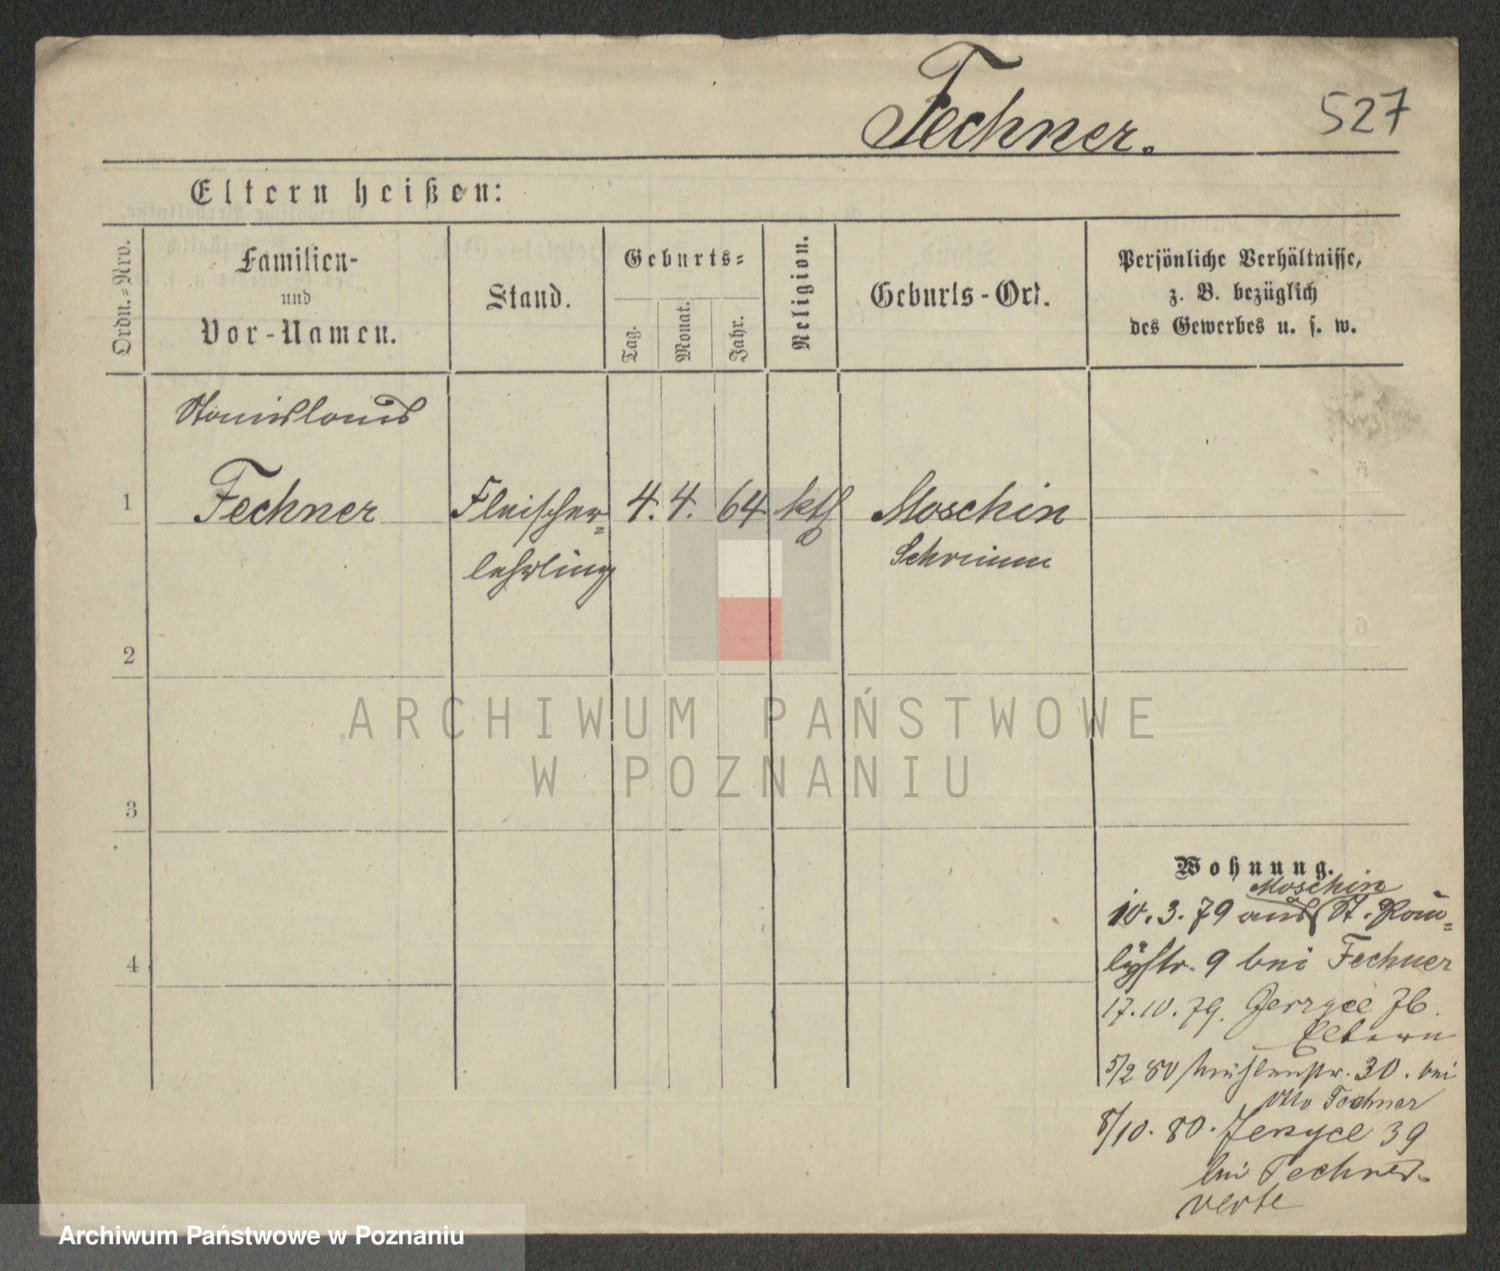 Fechner.
527
Eltern heißen:
Ordn.-Nro.
Familien-
und
Vor-Namen.
Stand.
Geburts-
Tag.
Monat.
Jahr.
Religion.
Geburts-Ort.
Persönliche Verhältnisse,
z. B. bezüglich
des Gewerbes u. s. w.
Stanislaus
1 Fechner Fleischer- 4. 4. 64 kth Moschin
lehrling Schrimm
2
3
4
Wohnung.
Moschin
10.3.79 aus St. 
str. 9 bei Fechner
17.10.79. Jerzyce 7b.
Eltern
5/2 80 Mühlenstr. 30. bei
Otto Fechner
8/10. 80. Jerzyce 39
bei Fechner.
verte
ARCHIWUM PAŃSTWOWE
W POZNANIU
Archiwum Państwowe w Poznaniu